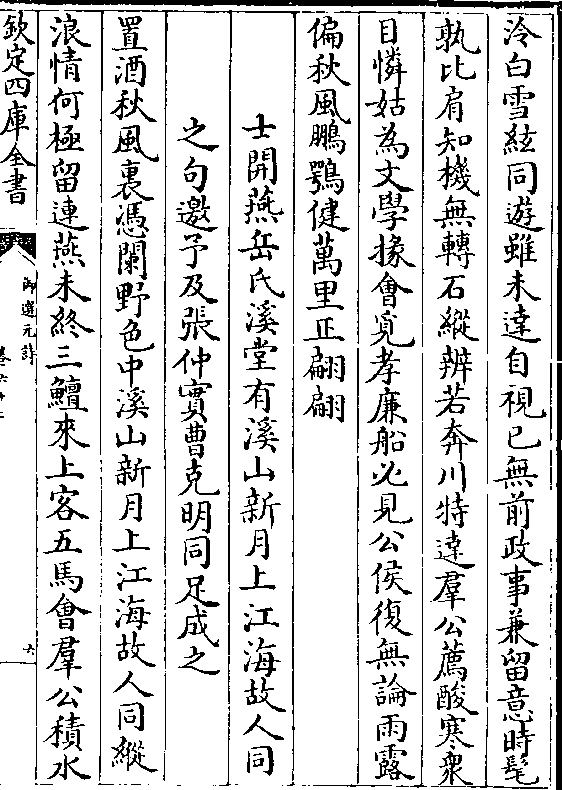 泠白雪絃同遊雖未達自視已無前政事兼留意時髦
孰比肩知機無轉石縱辨若奔川特達羣公薦酸寒衆
目憐姑為文學掾會覓孝廉船必見公侯復無論雨露
偏秋風鵬鶚健萬里正翩翩
士開燕岳氏溪堂有溪山新月上江海故人同
之句邀予及張仲實曹克明同足成之
置酒秋風裏憑闌野色中溪山新月上江海故人同縱
浪情何極留連燕未終三鱣來上客五馬會羣公積水
欽定四庫全書
御選元詩
六